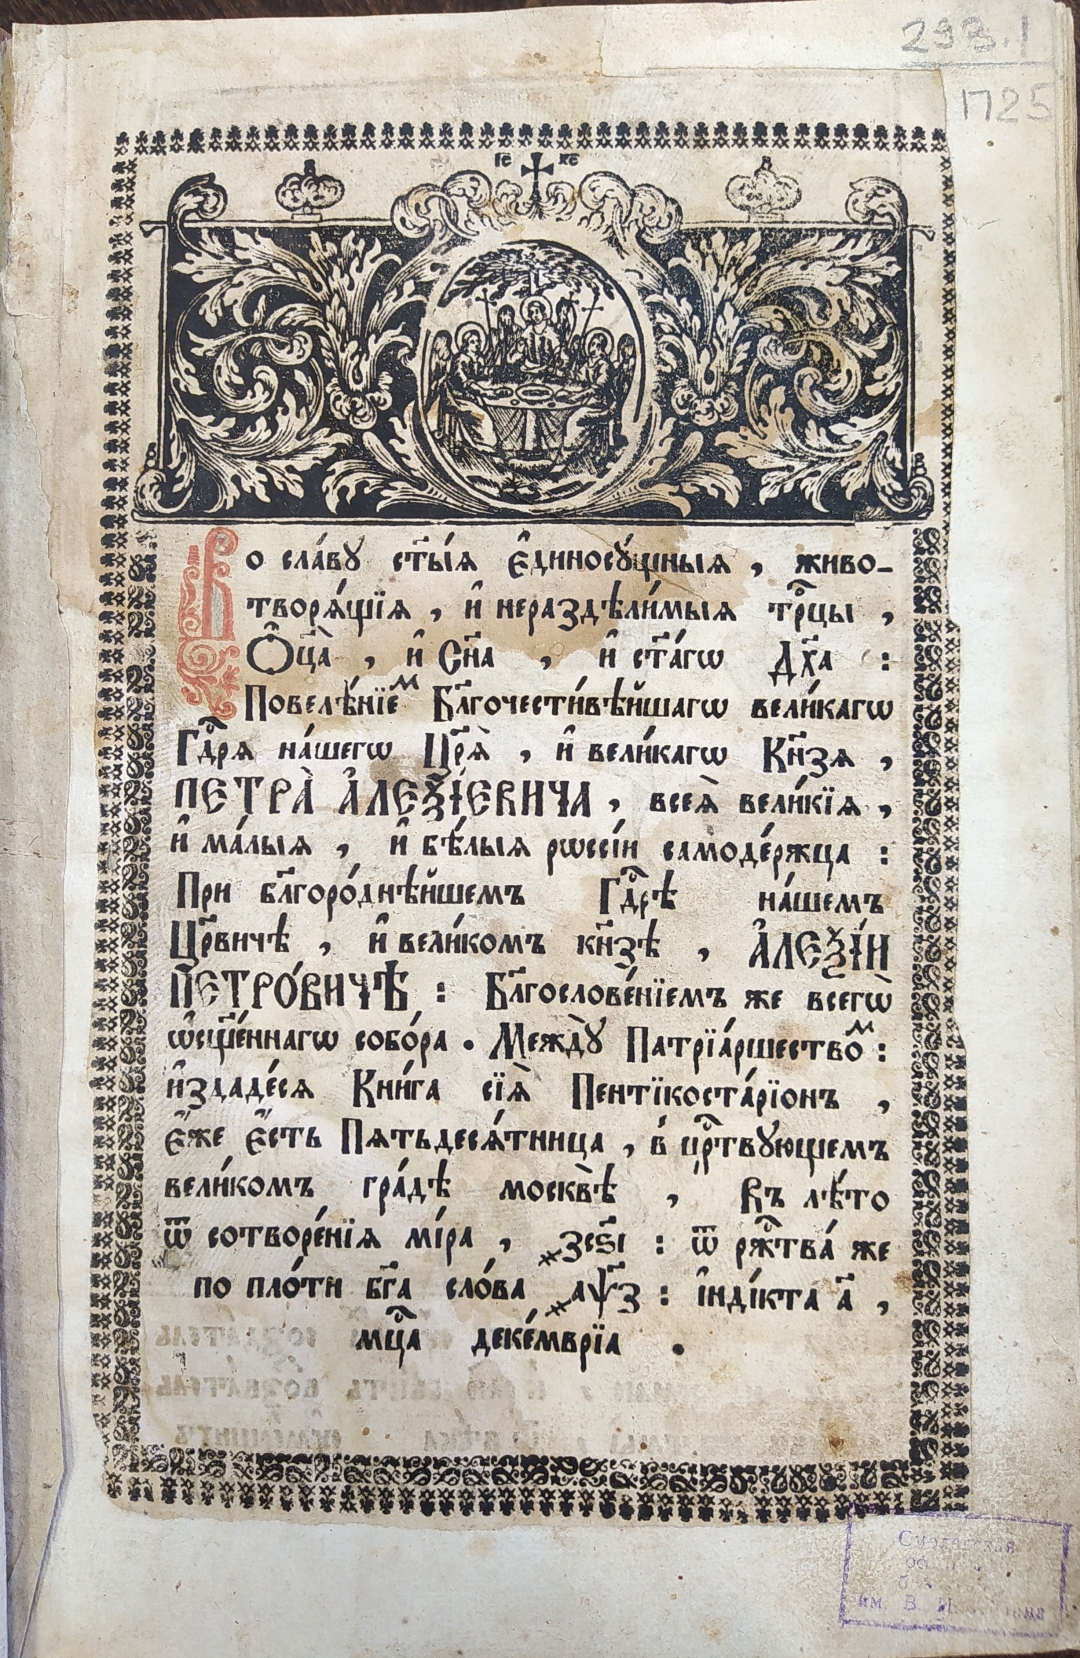 293.1
1725
І҃С Х҃С
Во сла́вꙋ ст҃ы́ѧ є҆диносꙋ́щныѧ , живо-
творѧ́щїѧ , и҆ нераздѣли́мыѧ трⷪ҇цы ,
Ѻ҆ц҃а̀ , и҆ Сн҃а , и҆ ст҃а́гѡ Дх҃а :
Повелѣ́нїеⷨ Бл҃гочести́вѣйшагѡ вели́кагѡ
Гдⷭ҇рѧ на́шегѡ Цр҃ѧ̀ , и҆ вели́кагѡ Кн҃зѧ ,
ПЕТРА̀ А҆ЛЕѮІ́ЕВИЧА , всеѧ̀ вели́кїѧ ,
и҆ ма́лыѧ , и҆ бѣ́лыѧ рѡссі́и самоде́ржца :
При бл҃горо́днѣйшемъ Гдⷭ҇рѣ на́шемъ
Цр҃вичѣ , и҆ вели́комъ кн҃зѣ , А҆ЛЕѮІ́И
ПЕТРО́ВИЧѢ : Бл҃гослове́нїемъ же всегѡ̀
ѡ҆сщ҃е́ннагѡ собо́ра . Междꙋ̀ Патрїа́ршествоⷨ :
и҆здаде́сѧ Кни́га сїѧ̀ Пентїкоста́рїонъ ,
є҆́же є҆́сть Пѧтьдесѧ́тница , в црⷭ҇твꙋющемъ
вели́комъ гра́дѣ москвѣ̀ , Въ лѣ́то
ѿ сотворе́нїѧ мі́ра , ҂зсѕ҃і : ѿ ржⷭ҇тва́ же
по пло́ти бг҃а сло́ва ҂аѱ҃з : і҆нді́кта а҃ ,
мцⷭ҇а деке́мврїа .
им. В. И.